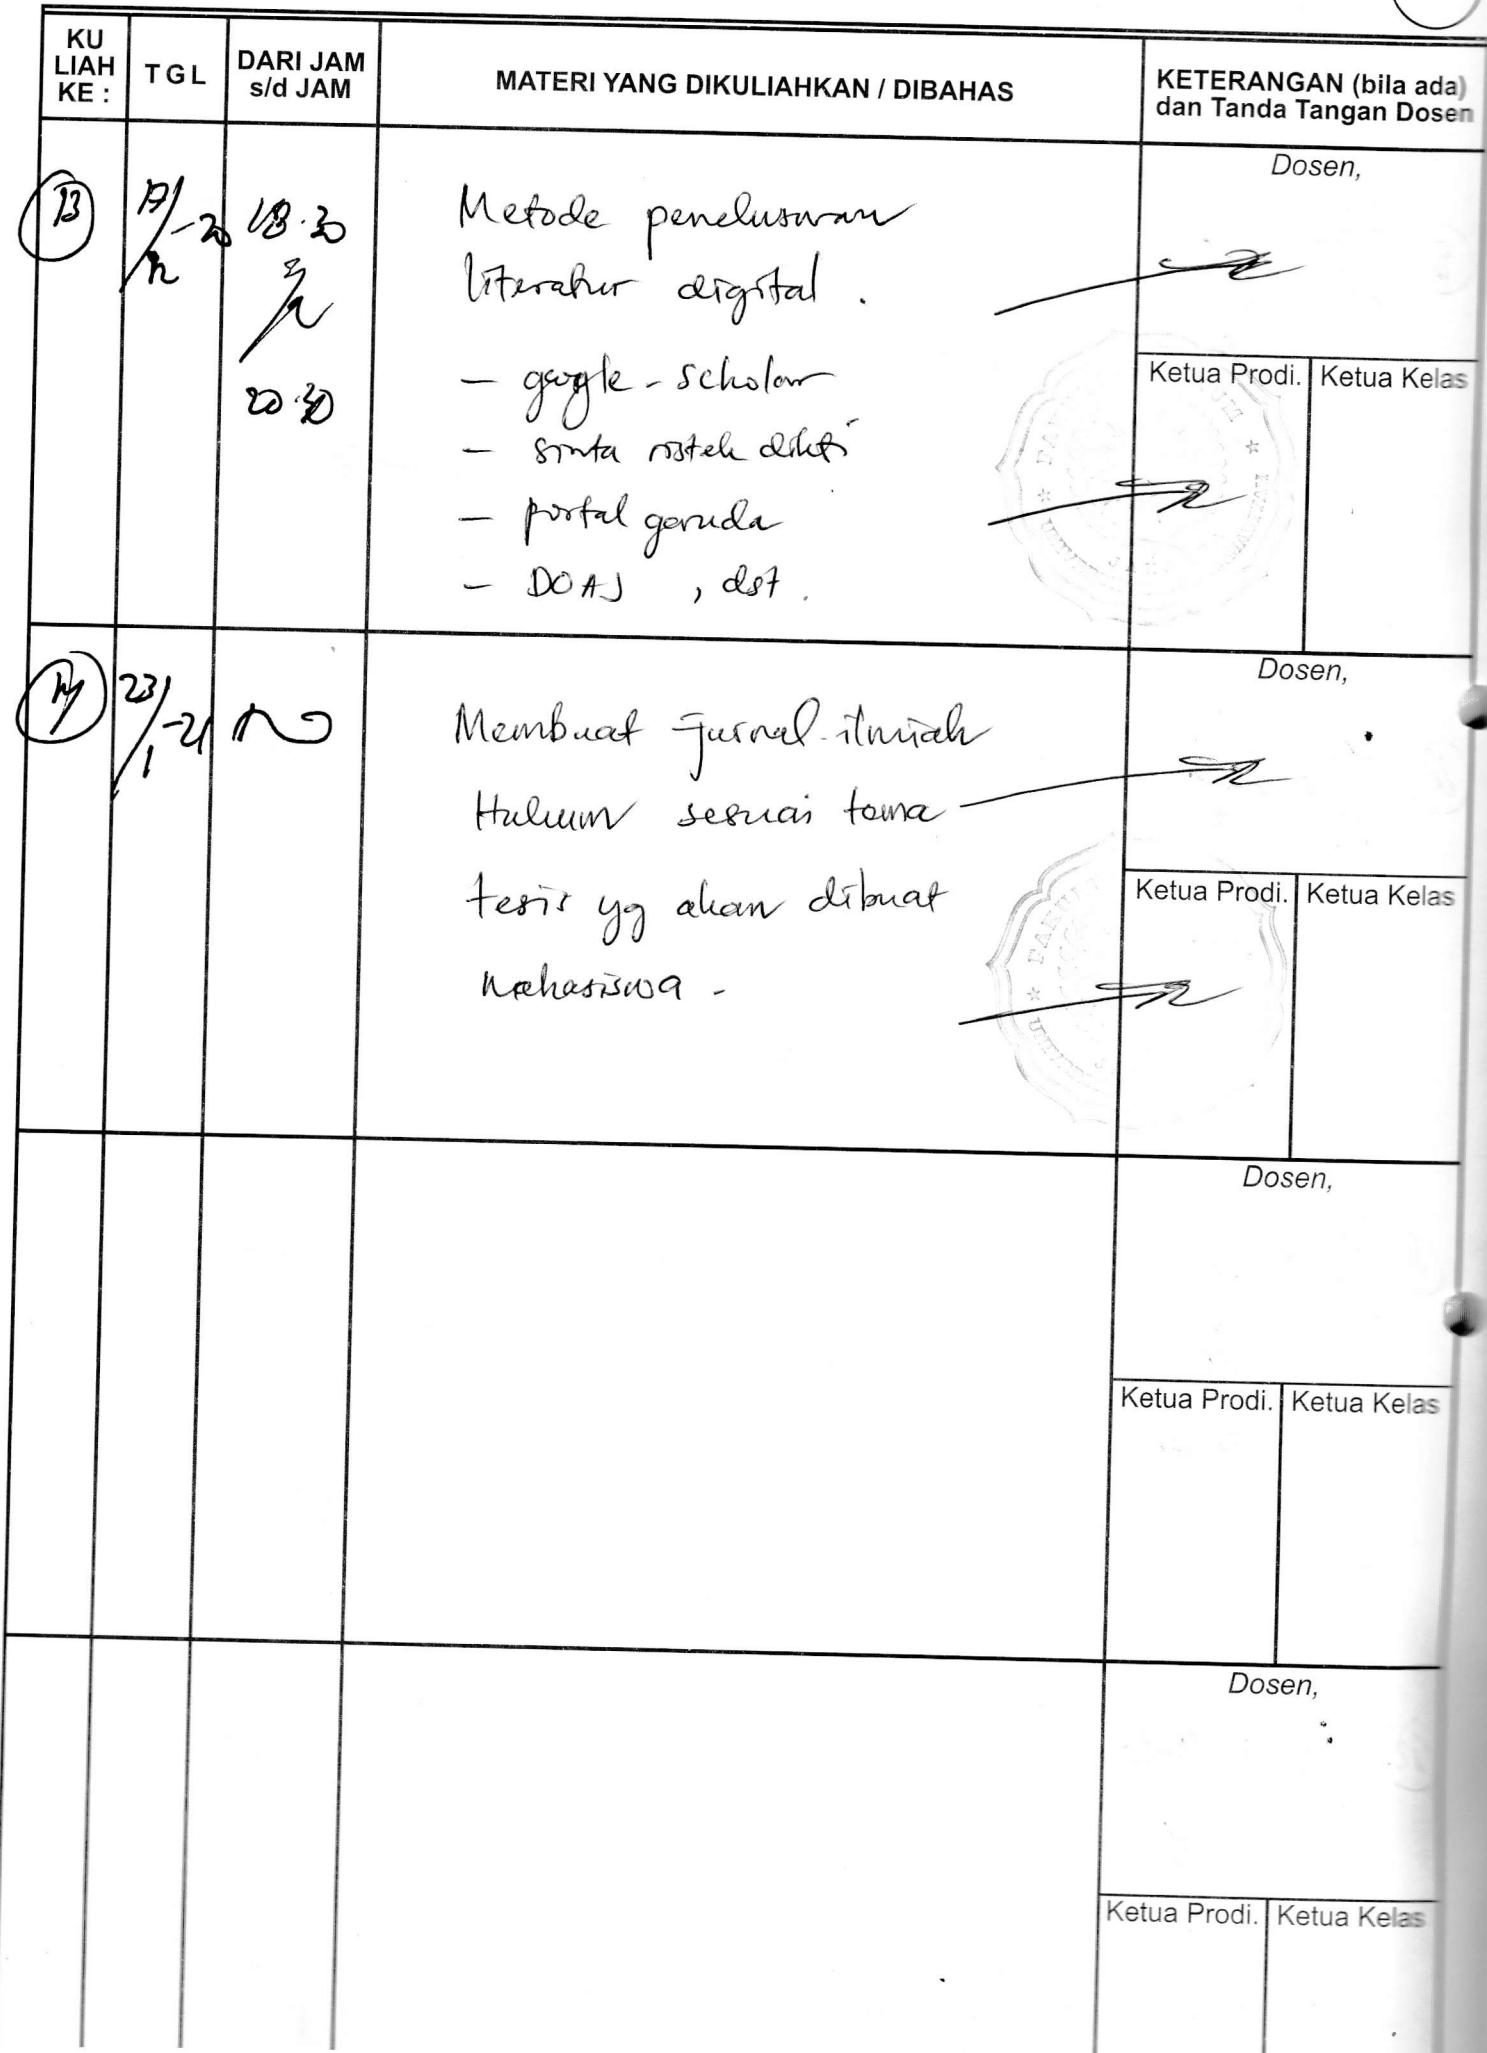 KU LIAH KE :
TGL
DARI JAM s/d JAM
MATERI YANG DIKULIAHKAN / DIBAHAS
KETERANGAN (bila ada)
dan Tanda Tangan Dosen
13
17/12-20
18.30
s/d
20.30
Metode penelusuran
literatur digital .
- google - scholar
- sinta ristek dikti
- portal garuda
- DOAJ , dst .
Dosen,
Ketua Prodi.
Ketua Kelas
14
23/1-21
Membuat jurnal ilmiah
Hukum sesuai tema
tesis yg akan dibuat
mahasiswa -
Dosen,
Ketua Prodi.
Ketua Kelas
Dosen,
Ketua Prodi.
Ketua Kelas
Dosen,
Ketua Prodi.
Ketua Kelas